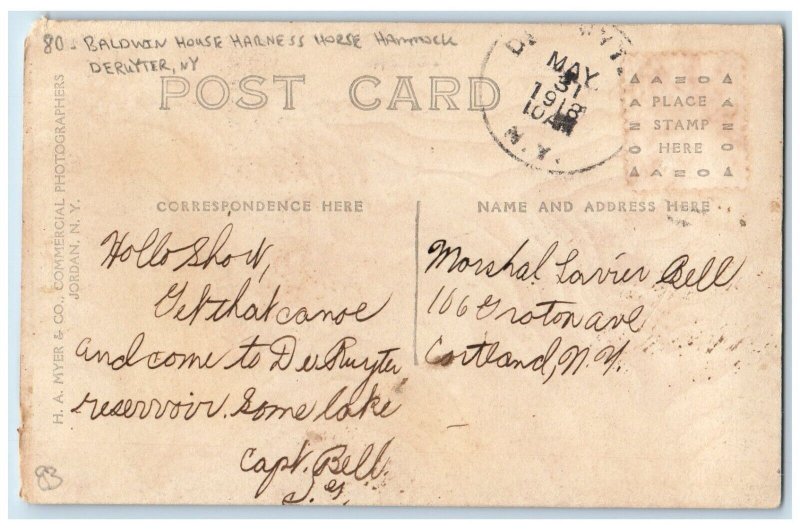 80 - BALDWIN HOUSE HARNESS HORSE HAMMOCK
DERUYTER, NY
POST CARD
MAY
31
1918
10AM
N.Y.
AZO
PLACE
STAMP
HERE
AZO
H. A. MYER & CO., COMMERCIAL PHOTOGRAPHERS
JORDAN, N. Y.
CORRESPONDENCE HERE
NAME AND ADDRESS HERE
Hollo Short,
Get that canoe
and come to De Ruyter
reservvoir. Some lake
Capt. Bell.
Marshal Lavier Bell
106 Groton ave
Cortland, N.Y.
83